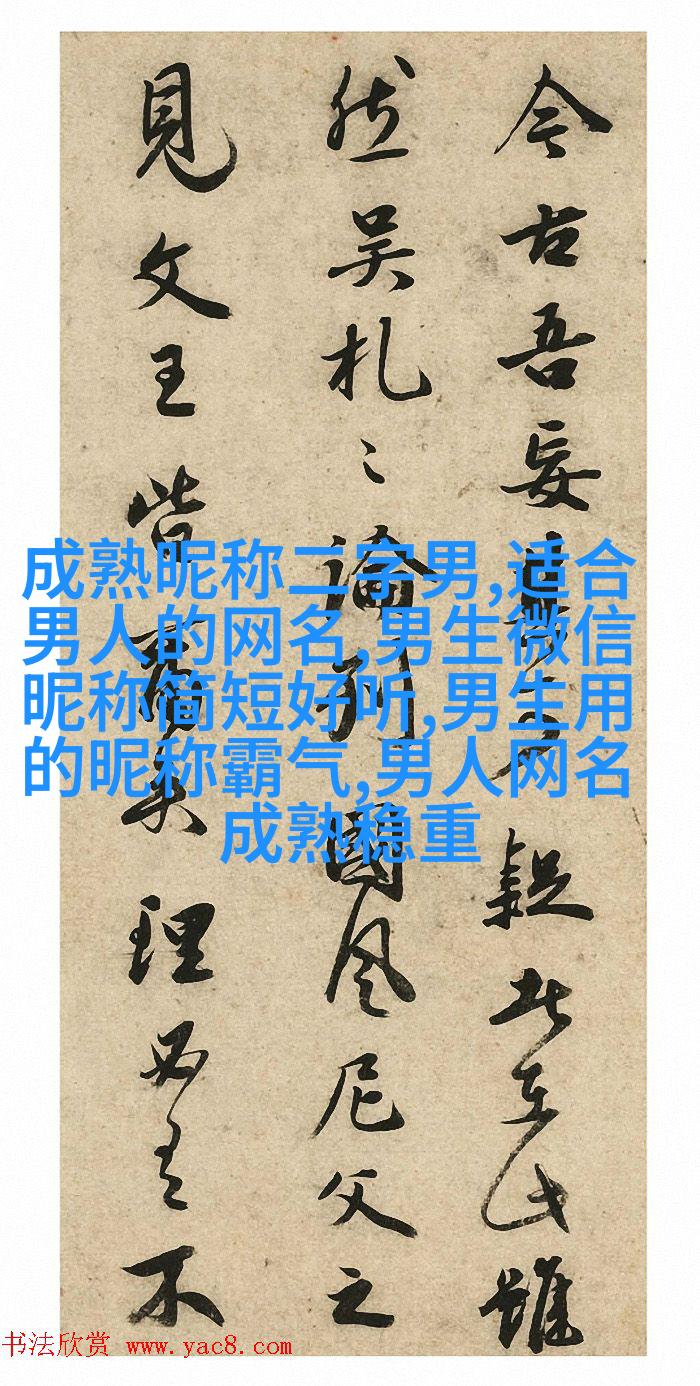 今古吾妄疑此在此雖
然吴札〻論列國風尼父之
見文王皆理必有不
成熟昵称二字男,适合
男人的网名,男生微信
昵称简短好听,男生用
的昵称霸气,男人网名
成熟稳重
书法欣赏 www.yac8.com